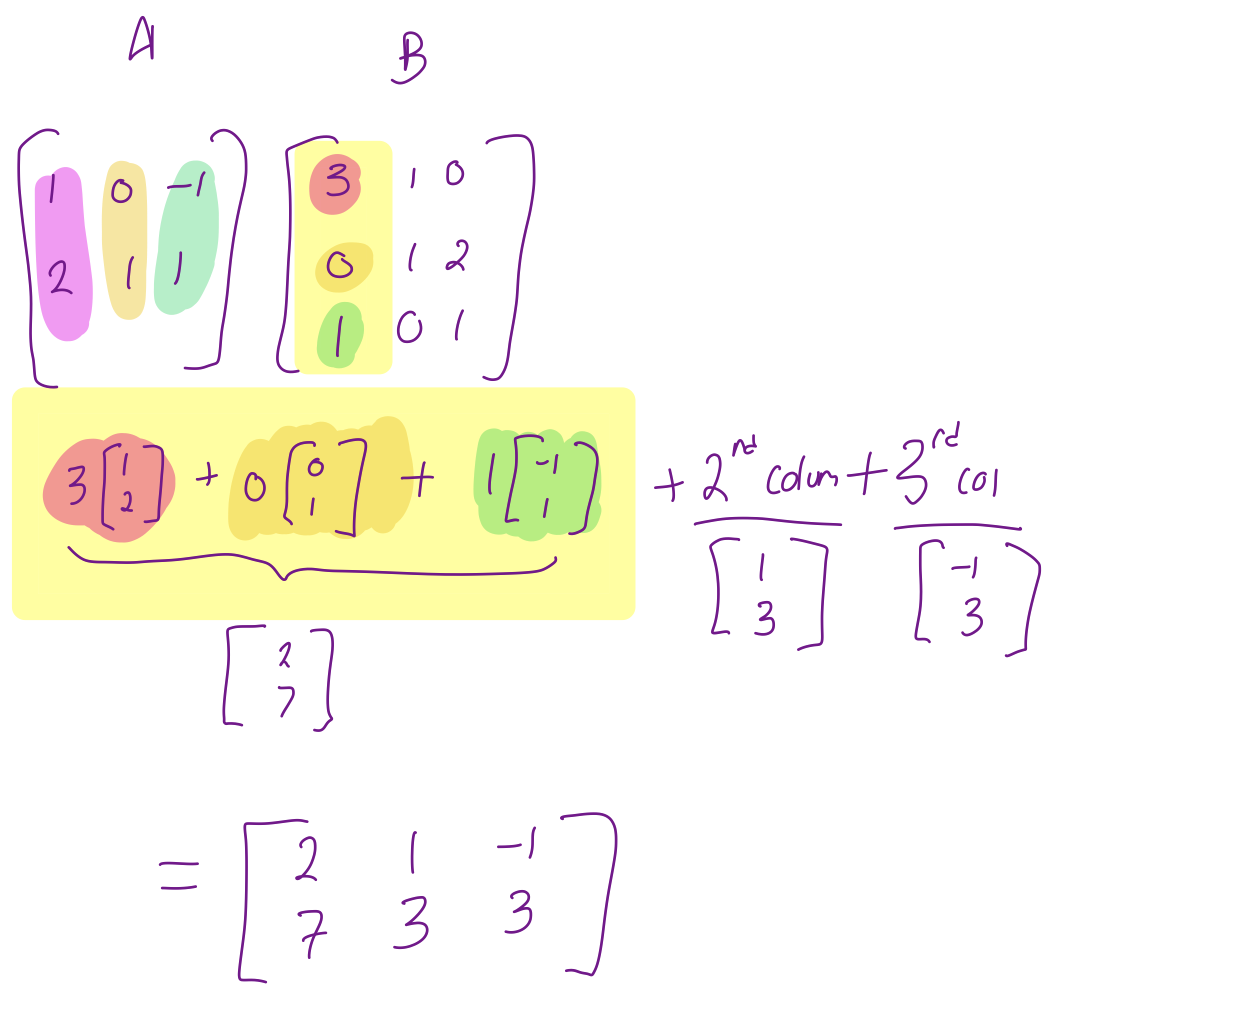 A B
[1 0 -1] [3 1 0]
[2 1 1] [0 1 2]
[1 0 1]
3 [1 2] + 0 [0 1] + 1 [-1 1] + 2nd colum + 3rd col
[1 3] [-1 3]
[2 7]
= [2 1 -1]
[7 3 3]